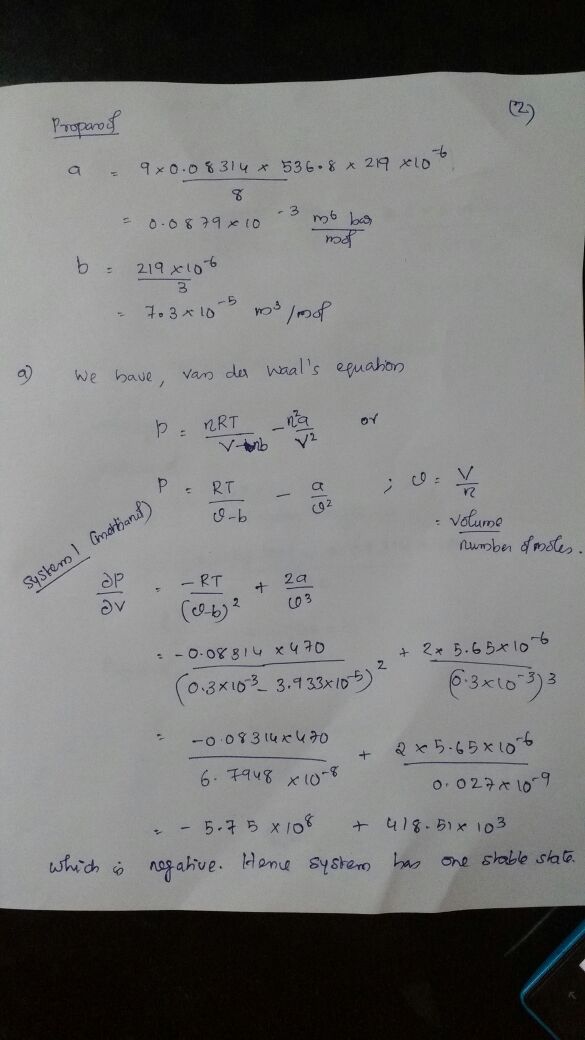 (2)
Propanol
a = 9 × 0.08314 × 536.8 × 219 × 10^-6 / 8
= 0.0879 × 10^-3 m^6 bar / mol
b = 219 × 10^-6 / 3
= 7.3 × 10^-5 m^3 / mol
a) We have, van der Waal's equation
P = nRT / V - nb - n^2 a / V^2 or
P = RT / v-b - a / v^2 ; v = V / n
= volume / number of moles.
System 1 (methanol)
∂P / ∂V = -RT / (v-b)^2 + 2a / v^3
= -0.08314 × 470 / (0.3×10^-3 - 3.933×10^-5)^2 + 2 × 5.65×10^-6 / (0.3×10^-3)^3
= -0.08314×470 / 6.7948 × 10^-8 + 2 × 5.65 × 10^-6 / 0.027 × 10^-9
= - 5.75 × 10^8 + 418.51 × 10^3
which is negative. Hence system has one stable state.